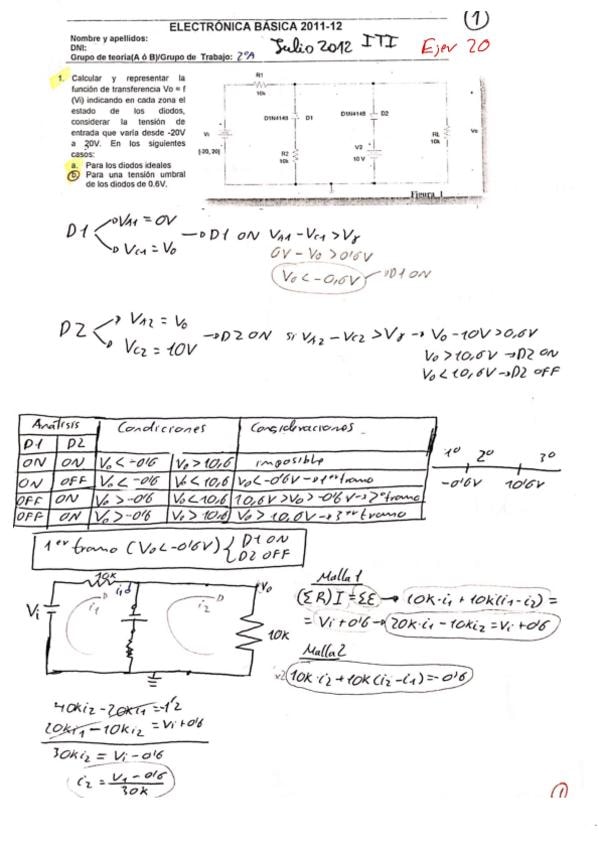 ELECTRÓNICA BÁSICA 2011-12
1
Nombre y apellidos:
DNI:
Grupo de teoría(A ó B)/Grupo de Trabajo: 2ºA
Julio 2012 ITI
Ejer 20
1. Calcular y representar la
función de transferencia Vo = f
(Vi) indicando en cada zona el
estado de los diodos,
considerar la tensión de
entrada que varía desde -20V
a 20V. En los siguientes
casos:
a. Para los diodos ideales
b. Para una tensión umbral
de los diodos de 0.6V.
R1
10k
D1N4148 D1
D1N4148 D2
Vi
[-20, 20]
R2
10k
V2
10 V
RL
10k
Vo
Figura 1
D1 VA1 = 0V
VC1 = Vo
D1 ON VA1 - VC1 > Vγ
0V - Vo > 0'6V
Vo < -0,6V D1 ON
D2 VA2 = Vo
VC2 = 10V
→ D2 ON si VA2 - VC2 > Vγ → Vo - 10V > 0,6V
Vo > 10,6V → D2 ON
Vo < 10,6V → D2 OFF
Análisis Condiciones Consideraciones
D1 D2
ON ON Vo < -0'6 Vo > 10,6 imposible
ON OFF Vo < -0'6 Vo < 10,6 Vo < -0'6V → 1er tramo
OFF ON Vo > -0'6 Vo < 10,6 10,6V > Vo > -0'6V → 2º tramo
OFF ON Vo > -0'6 Vo > 10,6 Vo > 10,6V → 3er tramo
1º 2º 3º
-0'6V 10'6V
1er tramo (Vo < -0'6V) { D1 ON
D2 OFF
10k
id
Vo
Vi
i1
i2
10k
Malla 1
(ΣR)I = ΣE → 10k·i1 + 10k(i1-i2) =
= Vi + 0'6 → 20k·i1 - 10ki2 = Vi + 0'6
Malla 2
10k·i2 + 10k(i2-i1) = -0'6
40ki2 - 20ki1 = -1'2
20ki1 - 10ki2 = Vi + 0'6
30ki2 = Vi - 0'6
i2 = V1 - 0'6 / 30k
1